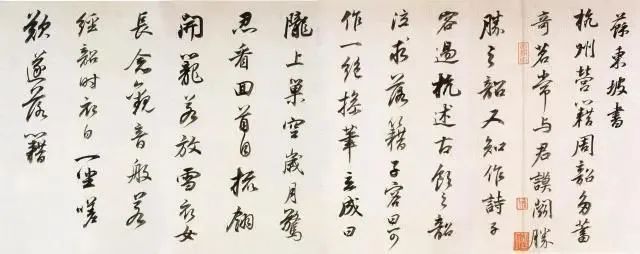 蘇東坡書
杭州營籍周韶多蓄
奇茗常与君謨鬪勝
勝之韶又知作詩子
容過杭述古飲之韶
泣求落籍子容曰可
作一絕援筆立成曰
隴上巢空歲月驚
忍看回首自梳翎
開籠若放雪衣女
長念觀音般若
經韶時衣白一坐嗟
歎遂落籍